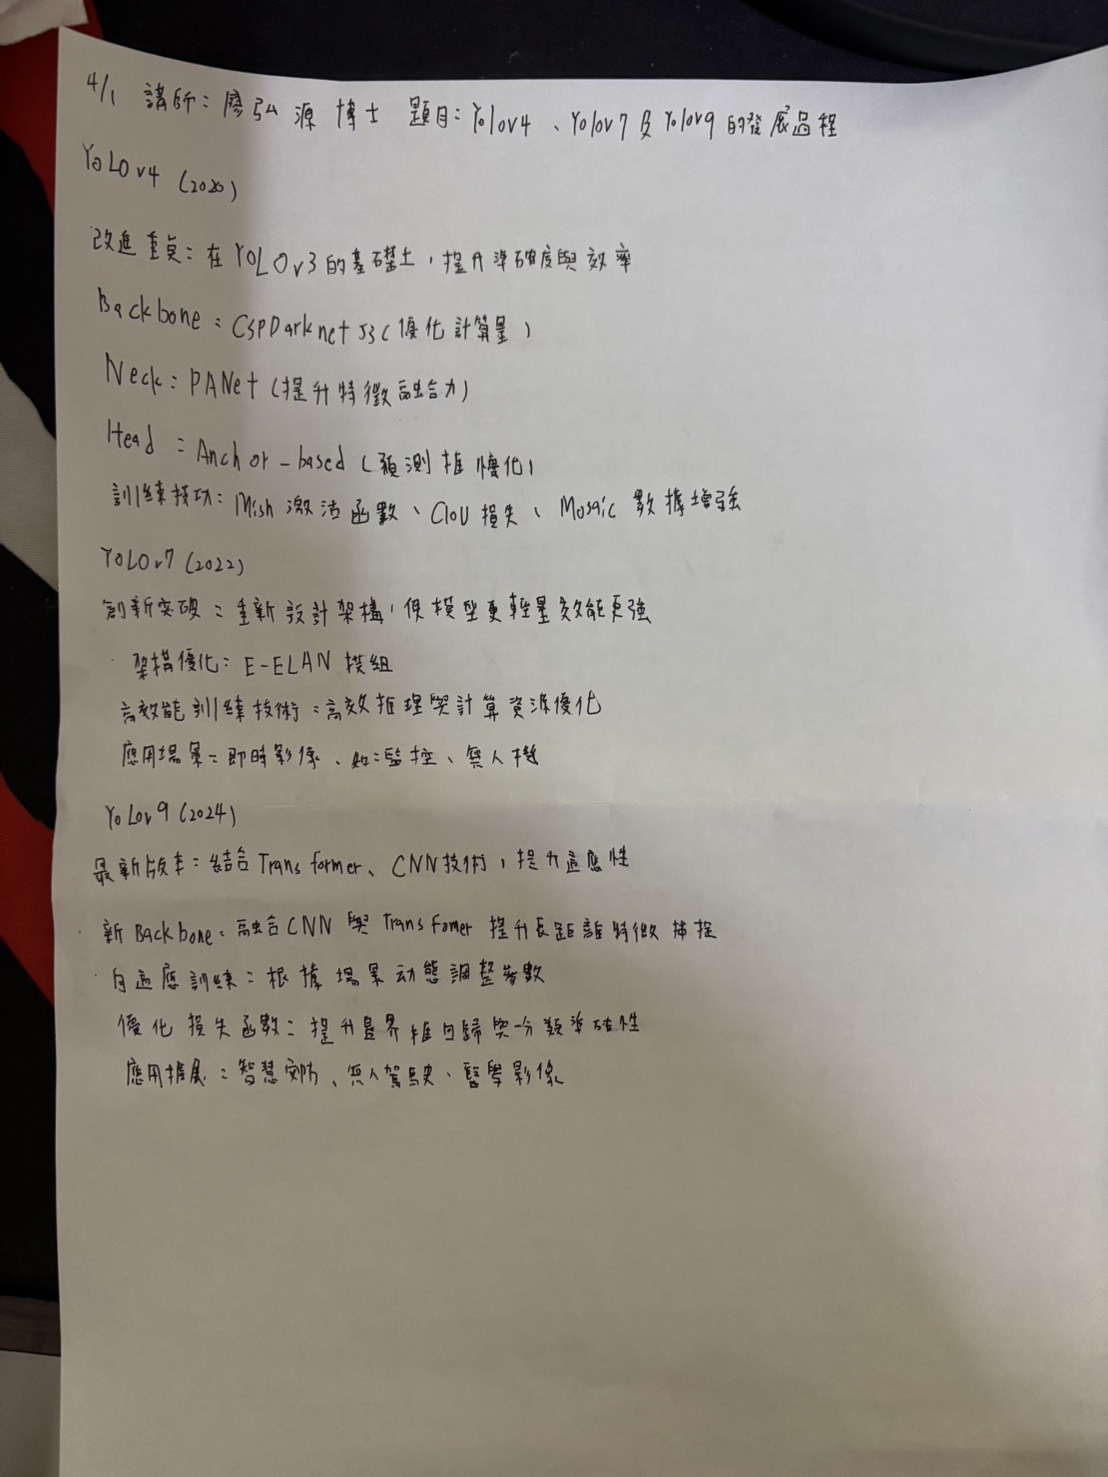 4/1 講師：廖弘源 博士 題目：Yolov4、Yolov7及Yolov9的發展過程
YOLOv4 (2020)
改進重點：在YOLOv3的基礎上，提升準確度與效率
Backbone：CSPDarknet53（優化計算量）
Neck：PANet（提升特徵融合力）
Head：Anchor-based（預測框優化）
訓練技巧：Mish 激活函數、CIoU損失、Mosaic 數據增強
YOLOv7 (2022)
創新突破：重新設計架構，使模型更輕量效能更強
· 架構優化：E-ELAN 模組
高效能訓練技術：高效推理與計算資源優化
應用場景：即時影像、如：監控、無人機
YOLOv9 (2024)
最新版本：結合Transformer、CNN技術，提升適應性
· 新Backbone：融合CNN與Transfomer 提升長距離特徵捕捉
· 自適應訓練：根據場景动態調整參數
優化損失函數：提升邊界框回歸與分類準確性
應用拓展：智慧安防、無人駕駛、醫學影像